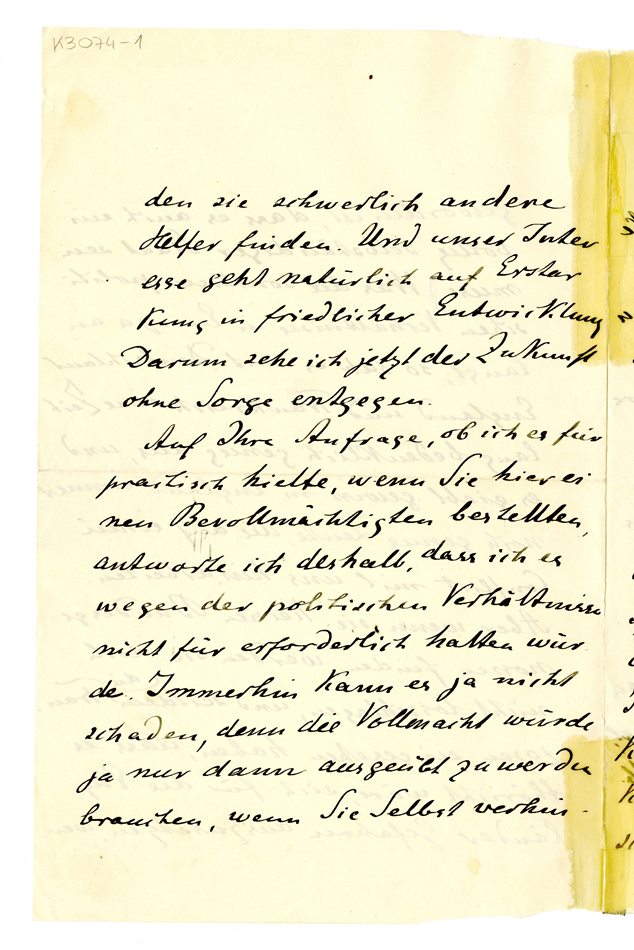 K3074-1
den sie schwerlich andere
Helfer finden. Und unser Inter
esse geht natürlich auf Erstar
kung in friedlicher Entwicklung
Darum sehe ich jetzt der Zukunft
ohne Sorge entgegen.
Auf Ihre Anfrage, ob ich es für
practisch hielte, wenn Sie hier ei
nen Bevollmächtigten bestellten,
antworte ich deshalb, dass ich es
wegen der politischen Verhältnisse
nicht für erforderlich halten wür
de. Immerhin kann es ja nicht
schaden, denn die Vollmacht würde
ja nur dann ausgeübt zu werden
brauchen, wenn Sie Selbst verhin-